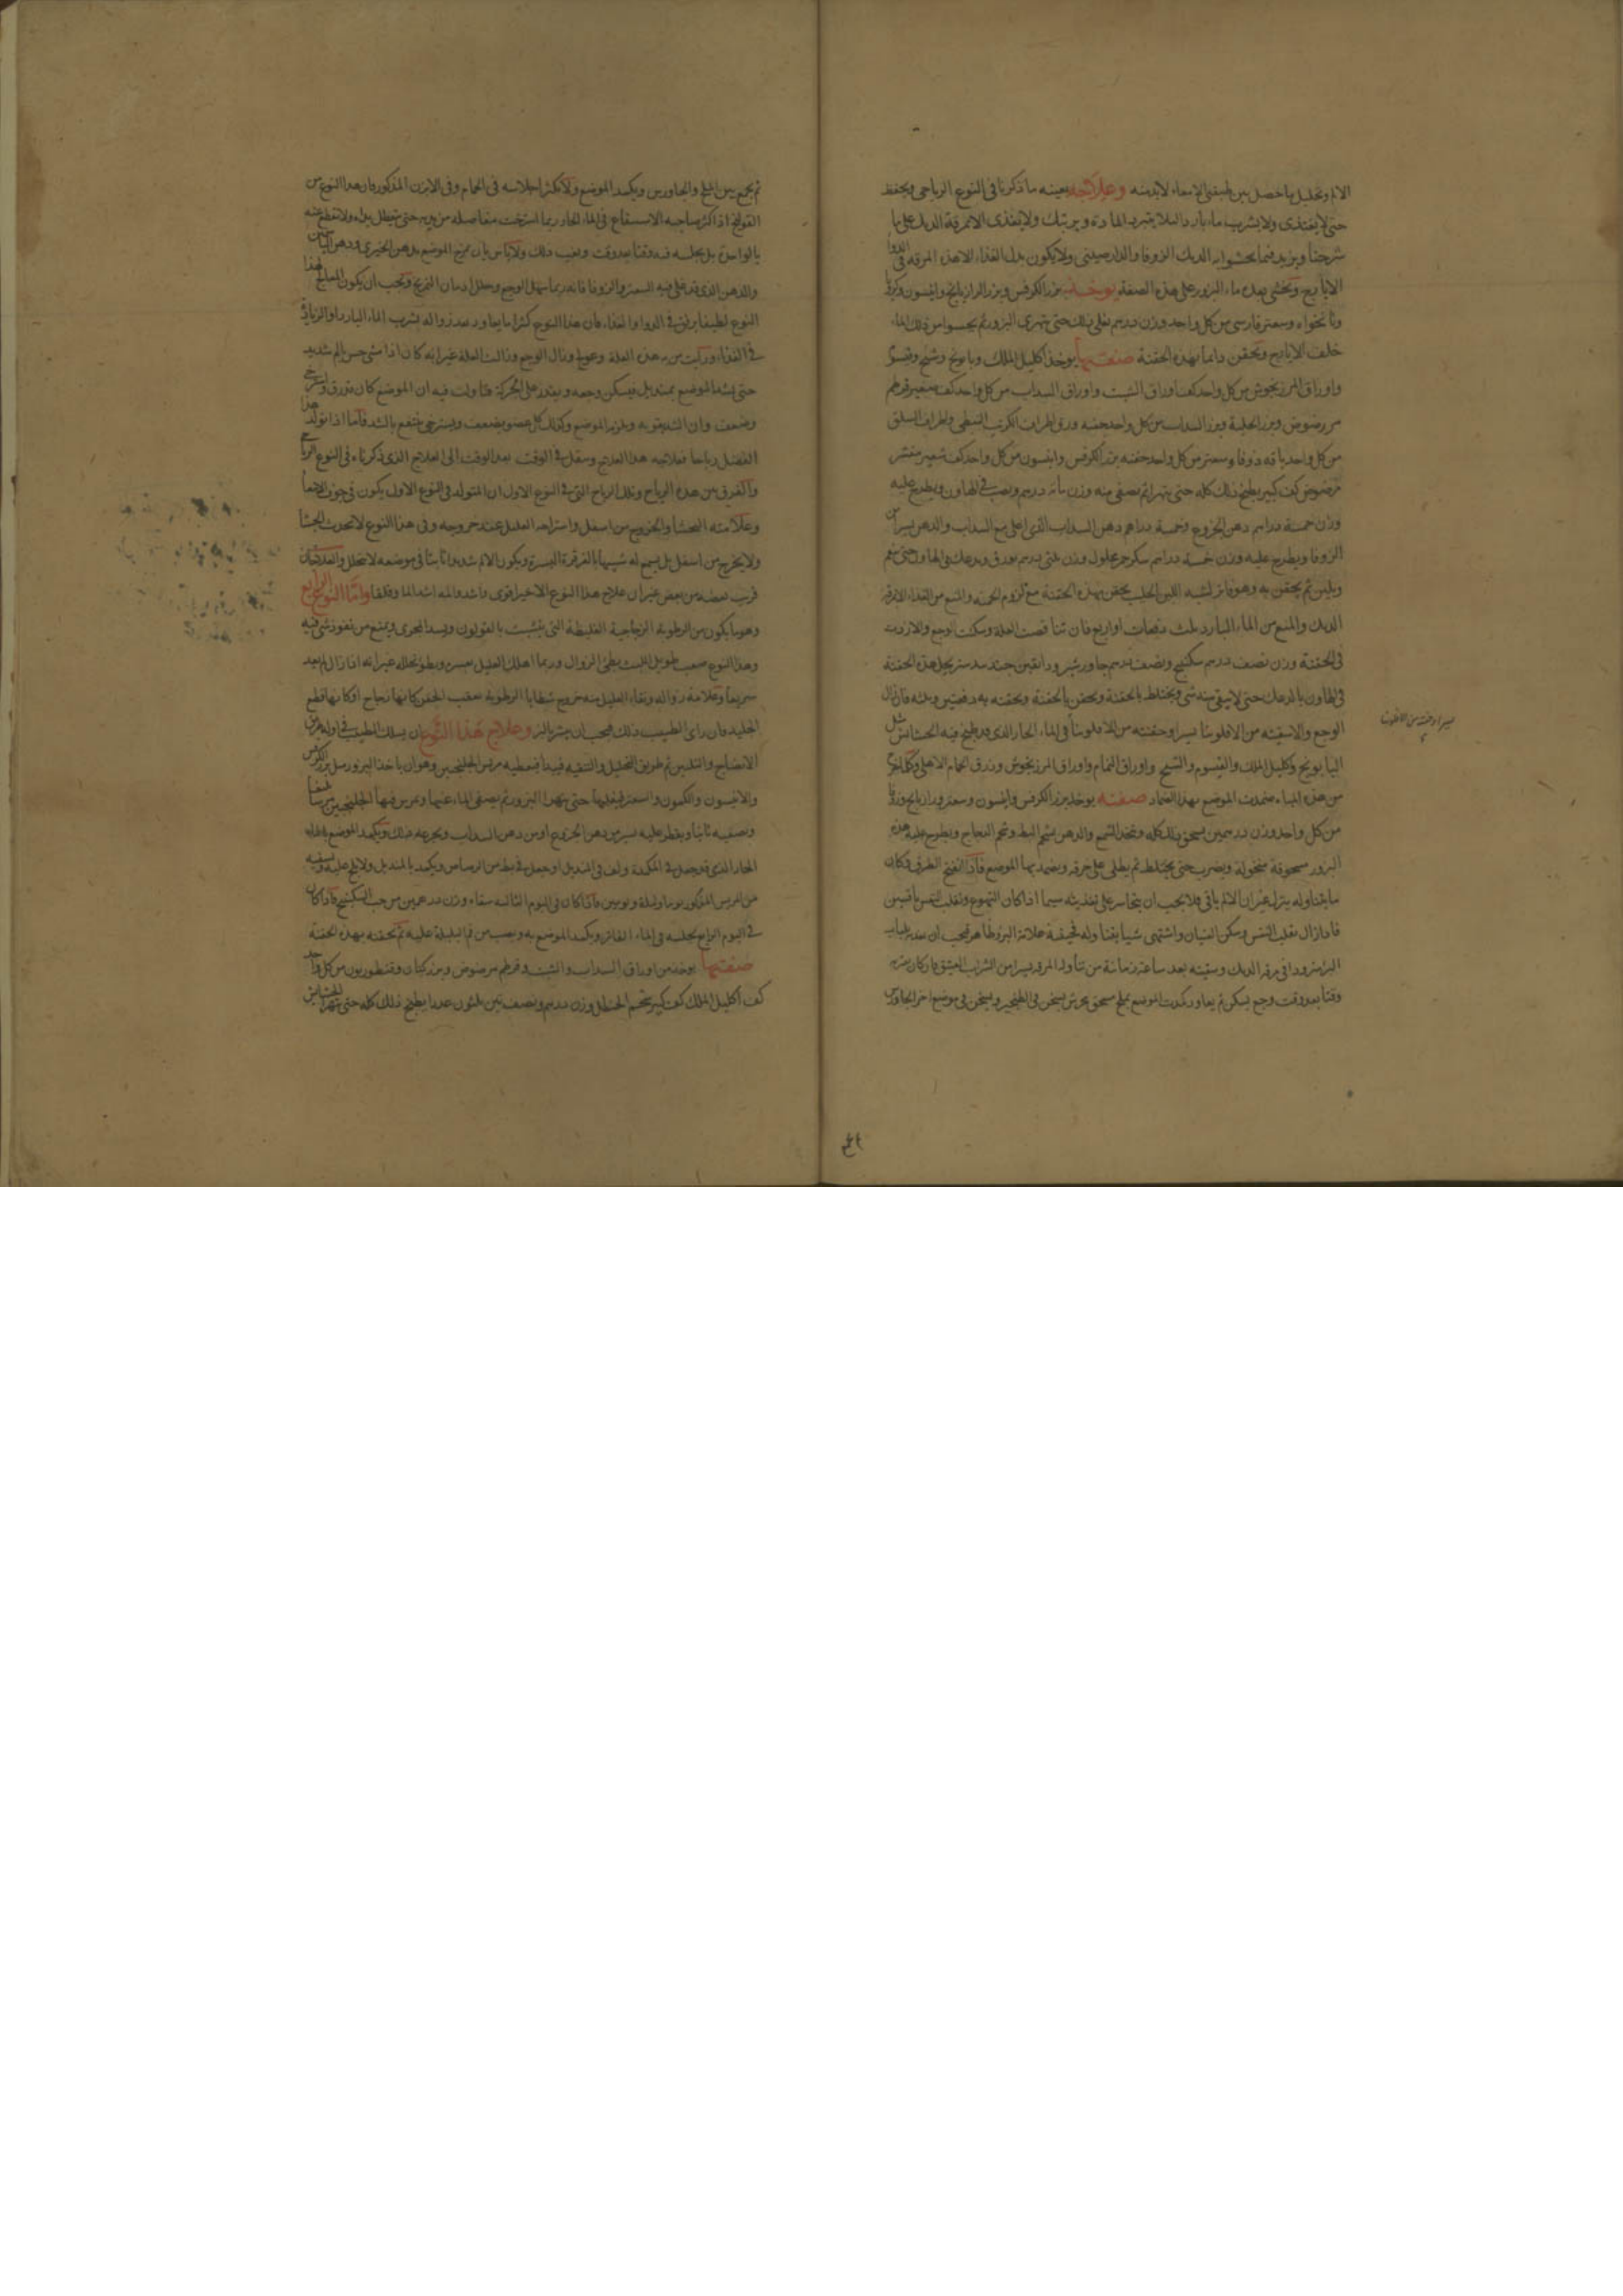 الالم وتحليل ما حصل بين طبقتي الامعاء لابدمنه وعلاجه بعينه ما ذكرنا في النوع الرياحي ويحفظ
حتى لا يغتذي ولا يشرب ماء باردا لئلا يتبرد المادة ويرتبك ولا يغتذي الا مرقة الديك على ما
شرحنا ويزيد فيما يحشوا به الديك الزوفا والدارصيني ولا يكون بدل الغذاء الا هذه المرقة في
الايارج ويحسى بعده ماء البزور على هذه الصفة يوخذ بزر الكرفس وبزر الرازيانج وانيسون
ونانخواه وسعتر فارسي من كل واحد وزن درهم يغلى ذلك حتى يتهرى البزور ثم يحسوا من ذلك الماء
خلف الايارج ويحقن دائما بهذه الحقنة صفتها يوخذ اكليل الملك وبابونج وشيح
واوراق المرزنجوش من كل واحد كف اوراق الشبث واوراق السداب من كل واحد كف صغير قرطم
مرضوض وبزر الحلبة وبزر السداب من كل واحد حفنه ورق اطراف الكرنب النبطي واطراف السلق
من كل واحد باقه زوفا وسعتر من كل واحد حفنه بزر الكرفس وانيسون من كل واحد كف شعير مقشر
مرضوض كف كبير يطبخ ذلك كله حتى يتهرا ثم يصفى منه وزن مائة درهم ويصب في الهاون ويطرح عليه
وزن خمسة دراهم دهن الخروع وخمسة دراهم دهن السداب الذي اغلي مع السداب والدهن
الزوفا ويطرح عليه وزن خمسة دراهم سكرجه محلول وزن ثلثي درهم بورق ويدعك في الهاون حتى ينعم
ويلين ثم يحقن به وهو فاتر لشبه اللبن الحليب يحقن بهذه الحقنة مع لزوم الحمية والمنع من الغذاء الا مرقة
الديك والمنع من الماء البارد ثلث دفعات او اربع فان تناقصت العلة وسكنت الوجع والا زدت
في الحقنة وزن نصف درهم سكبينج ونصف درهم جاوشير ودانقين جندبيدستر يحل هذه الحقنة
في الهاون بالدعك حتى لا يبقى منه شي ويختلط بالحقنة ويحقن بالحقنة ويحقنه به دفعتين وثلثه فان زال
الوجع والا سقيته من الافلونيا يسيرا وحقنته من الافلونيا في الماء الحار الذي قد طبخ فيه الحشائش مثل
البابونج واكليل الملك والقيسوم والشيح واوراق النمام واوراق المرزنجوش وذرق الحمام الاهلي
من هذه المياه ضمدت الموضع بهذا الضماد صفته يوخذ بزر الكرفس وانيسون وسعتر ورازيانج
من كل واحد وزن درهمين يسحق ذلك كله ويتخذ الشمع والدهن بشحم البط وشحم الدجاج ويطرح عليه هذه
البزور مسحوقة منخولة ويضرب حتى يختلط ثم يطلى على خرقه ويضمد بها الموضع فاذا انفتح الطرف وكان
ما يتناوله ينزل غير ان الالم باقي فلا يجب ان يتجاسر على تغذيته سيما اذا كان التهوع وتقلب النفس باقيين
فاذا زال تقلب النفس وسكن الغثيان واشتهى شيا يتناوله فحينئذ علامة البرؤ ظاهر فيجب ان
البر مثرودا في مرقه الديك وسقيته بعد ساعة زمانية من تناوله المرقه يسيرا من الشراب العتيق
وقتا بعد وقت وجع يسكن ثم يعاود كمدت الموضع بملح مسحوق جريش يسخن في الطنجير ويسخن في موضع اخر الجاورس
يسيرا وحقنته من الافلونيا
ثم يجمع بين الملح والجاورس ويكمد الموضع ولا يكثر اجلاسه في الحمام وفي الابزن المذكور فان هذا النوع من
القولنج اذا اكثر صاحبه الاستنقاع في الماء الحار ربما استرخت مفاصله من يديه حتى يتعطل يداه ولا تقطع عنه
بالواحدة بل يجلسه فيه وقتا بعد وقت وبغب ذلك ولا باس بان يمرخ الموضع بدهن الخيري ودهن
والدهن الذي قد غلي فيه السعتر والزوفا فانه ربما سهل الوجع وحلل ادمان التمريخ ويجب ان يكون المعالج لهذا
النوع لطيفا يرفق في الدوا والغذاء فان هذا النوع كثيرا ما يعاود بعد زواله بشرب الماء البارد او الزيادة
في الغذاء ورايت من به هذه العلة وعولج وزال الوجع وزالت العلة غير انه كان اذا مشى حس بالم شديد
حتى يشد الموضع بمنديل فيسكن وجعه ويقدر على الحركة فتاولت فيه ان الموضع كان
وضعف وان الشد يقويه ويلزم الموضع وكذلك كل عضو يضعف ويسترخي ينتفع بالشد فاما اذا تولد هذا
الفضل رياحا فعلاجه هذا العلاج وينقل في الوقت بعد الوقت الى العلاج الذي ذكرناه في النوع
والفرق بين هذه الرياح وتلك الرياح التي في النوع الاول ان المتولد في النوع الاول يكون في جوف الامعا
وعلامته الجشا والخروج من اسفل واستراحة العليل عند خروجه وفي هذا النوع لا يحدث الجشا
ولا يخرج من اسفل بل يسمع له شبيها بالقرقرة اليسيرة ويكون الالم شديدا ثابتا في موضعه لا يتحلل والعلاجان
قريب بعضه من بعض غير ان علاج هذا النوع الاخير اقوى واشد والمه اشد الما وقلقا واما النوع الرابع
وهو ما يكون من الرطوبة الزجاجية الغليظة التي يتشبث بالقولون ويسد المجرى ويمنع من نفوذ شي فيه
وهذا النوع صعب طويل اللبث بطئ الزوال وربما اهلك العليل بعسره وبطؤ تحلله غير انه اذا زال لم يعد
سريعا وعلامة زواله ونقاء العليل منه خروج شظايا الرطوبة بعقب الحقن كانها زجاج او كانها قطع
الجليد فان راى الطبيب ذلك فيجب ان يبشر بالبر وعلاج هذا النوع ان يسلك الطبيب في اوله
الانضاج والتليين ثم طريق التحليل والتنقيه فيبدا فيعطيه مريس الجلنجبين وهو ان ياخذ البزور مثل بزر الكرفس
والانيسون والكمون والسعتر فيغليها حتى يتهرا البزور ثم يصفى الماء عنها ويمرس فيها الجلنجبين مرسا
ويصفيه ثانيا ويقطر عليه يسير من دهن الخروع او من دهن السداب ويجرعه ذلك ويكمد الموضع بالماء
الحار الذي قد جعل في المكمدة ولف في المنديل او جعل في بط من الرصاص ويكمد بالمنديل ولا يلح عليه
من المريس المذكور يوما وليلة ويومين فاذا كان في اليوم الثالث سقاه وزن درهمين من حب السكبينج فاذا كان
في اليوم الرابع يجلسه في الماء الفاتر ويكمد الموضع به ويصب من فم البلبلة عليه ثم يحقنه بهذه الحقنة
صفتها يوخذ من اوراق السداب والشبث وقرطم مرضوض وبزر كتان وقنطوريون من كل واحد
كف اكليل الملك كف كبير شحم الحنظل وزن درهم ونصف تين ثلثون عددا يطبخ ذلك كله حتى يتهرا